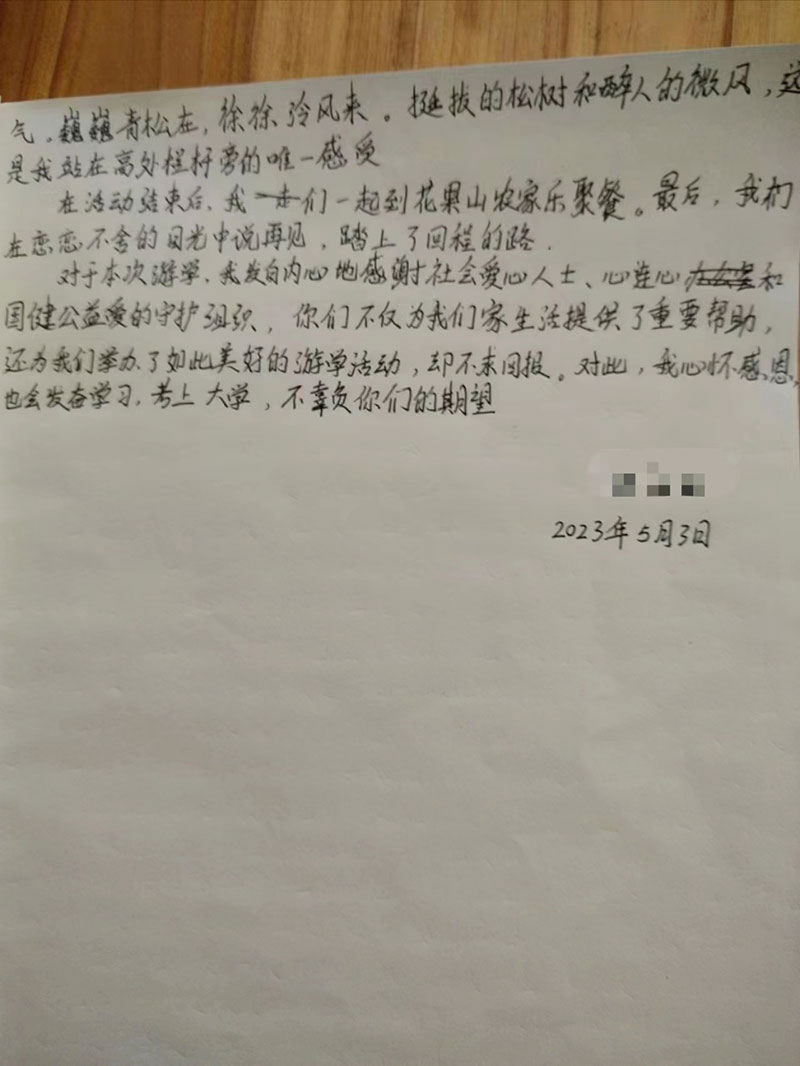 气。巍巍青松在，徐徐冷风来。挺拔的松树和醉人的微风，这
是我站在高处栏杆旁的唯一感受
在活动结束后，我们一起到花果山农家乐聚餐。最后，我们
在恋恋不舍的目光中说再见，踏上了回程的路．
对于本次游学，我发自内心地感谢社会爱心人士、心连心和
国健公益爱的守护组织，你们不仅为我们家生活提供了重要帮助，
还为我们举办了如此美好的游学活动，却不求回报。对此，我心怀感恩，
也会发奋学习，考上大学，不辜负你们的期望
2023年5月3日